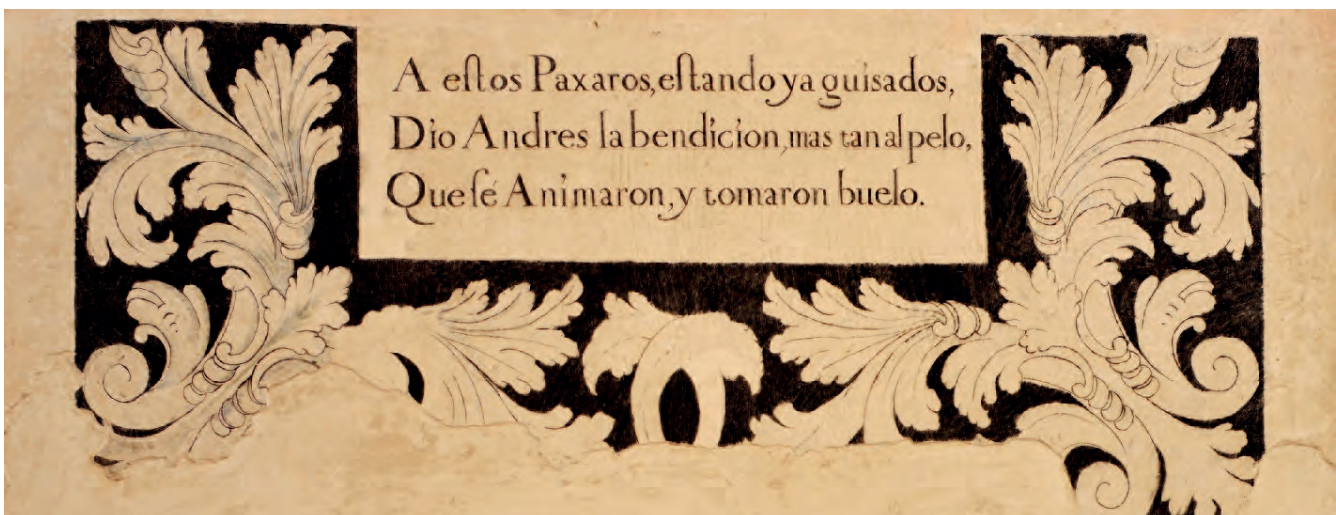 A eſtos Paxaros, eſtando ya guisados,
Dio Andres la bendicion, mas tan al pelo,
Que ſé Animaron, y tomaron buelo.